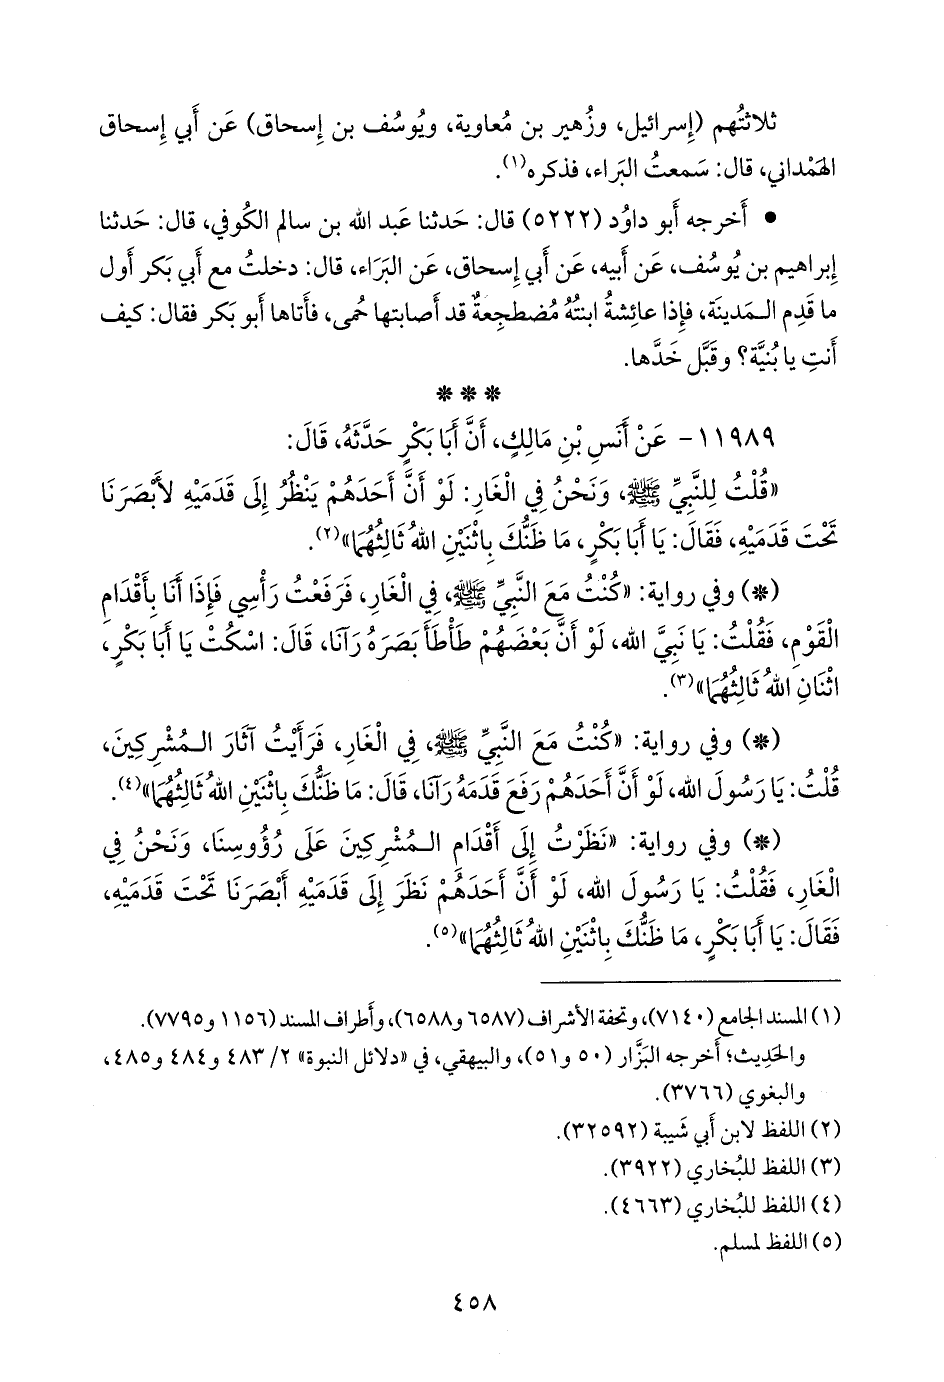 ثلاثتُهم (إسرائيل، وزُهير بن مُعاوية، ويُوسُف بن إسحاق) عَن أَبي إسحاق
الهَمْداني، قال: سَمعتُ البَراء، فذكره(١).
• أَخرجه أَبو داوُد (٥٢٢٢) قال: حَدثنا عَبد الله بن سالم الكُوفي، قال: حَدثنا
إبراهيم بن يُوسُف، عَن أَبيه، عَن أَبي إسحاق، عَن البَرَاء، قال: دخلتُ مع أَبي بَكر أَول
ما قَدِم المَدينَة، فإذا عائشةُ ابنتُهُ مُضطجِعةٌ قد أَصابتها حُمى، فأَتاها أَبو بَكر فقال: كيف
أَنتِ يا بُنيَّة؟ وقَبَّل خَدَّها.
* * *
١١٩٨٩- عَنْ أَنَسِ بْنِ مَالِكٍ، أَنَّ أَبَا بَكْرٍ حَدَّثَهُ، قَالَ:
«قُلْتُ لِلنَّبِيِّ ﷺ، وَنَحْنُ فِي الْغَارِ: لَوْ أَنَّ أَحَدَهُمْ يَنْظُرُ إِلَى قَدَمَيْهِ لأَبْصَرَنَا
تَحْتَ قَدَمَيْهِ، فَقَالَ: يَا أَبَا بَكْرٍ، مَا ظَنُّكَ بِاثْنَيْنِ اللهُ ثَالِثُهُمَا»(٢).
(*) وفي رواية: «كُنْتُ مَعَ النَّبِيِّ ﷺ، فِي الْغَارِ، فَرَفَعْتُ رَأْسِي فَإِذَا أَنَا بِأَقْدَامِ
الْقَوْمِ، فَقُلْتُ: يَا نَبِيَّ الله، لَوْ أَنَّ بَعْضَهُمْ طَأْطَأَ بَصَرَهُ رَآنَا، قَالَ: اسْكُتْ يَا أَبَا بَكْرٍ،
اثْنَانِ اللهُ ثَالِثُهُمَا»(٣).
(*) وفي رواية: «كُنْتُ مَعَ النَّبِيِّ ﷺ، فِي الْغَارِ، فَرَأَيْتُ آثَارَ المُشْرِكِينَ،
قُلْتُ: يَا رَسُولَ الله، لَوْ أَنَّ أَحَدَهُمْ رَفَعَ قَدَمَهُ رَآنَا، قَالَ: مَا ظَنُّكَ بِاثْنَيْنِ اللهُ ثَالِثُهُمَا»(٤).
(*) وفي رواية: «نَظَرْتُ إِلَى أَقْدَامِ المُشْرِكِينَ عَلَى رُؤُوسِنَا، وَنَحْنُ فِي
الْغَارِ، فَقُلْتُ: يَا رَسُولَ الله، لَوْ أَنَّ أَحَدَهُمْ نَظَرَ إِلَى قَدَمَيْهِ أَبْصَرَنَا تَحْتَ قَدَمَيْهِ،
فَقَالَ: يَا أَبَا بَكْرٍ، مَا ظَنُّكَ بِاثْنَيْنِ اللهُ ثَالِثُهُمَا»(٥).
(١) المسند الجامع (٧١٤٠)، وتحفة الأشراف (٦٥٨٧ و٦٥٨٨)، وأَطراف المسند (١١٥٦ و٧٧٩٥).
والحَدِيث؛ أَخرجه البَزَّار (٥٠ و٥١)، والبيهقي، في «دلائل النبوة» ٢/ ٤٨٣ و٤٨٤ و٤٨٥،
والبغوي (٣٧٦٦).
(٢) اللفظ لابن أَبي شَيبة (٣٢٥٩٢).
(٣) اللفظ للبُخاري (٣٩٢٢).
(٤) اللفظ للبُخاري (٤٦٦٣).
(٥) اللفظ لمسلم.
٤٥٨